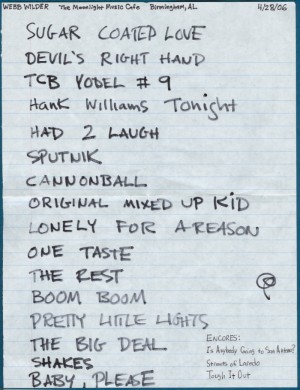 WEBB WILDER The Moonlight Music Cafe Birmingham, AL 4/28/06
SUGAR COATED LOVE
DEVIL'S RIGHT HAND
TCB YODEL # 9
Hank Williams Tonight
HAD 2 LAUGH
SPUTNIK
CANNONBALL
ORIGINAL MIXED UP KID
LONELY FOR A REASON
ONE TASTE
THE REST
BOOM BOOM
PRETTY LITTLE LIGHTS
THE BIG DEAL
SHAKES
BABY, PLEASE
ENCORES:
Is Anybody Going to San Antone?
Streets of Laredo
Tough It Out